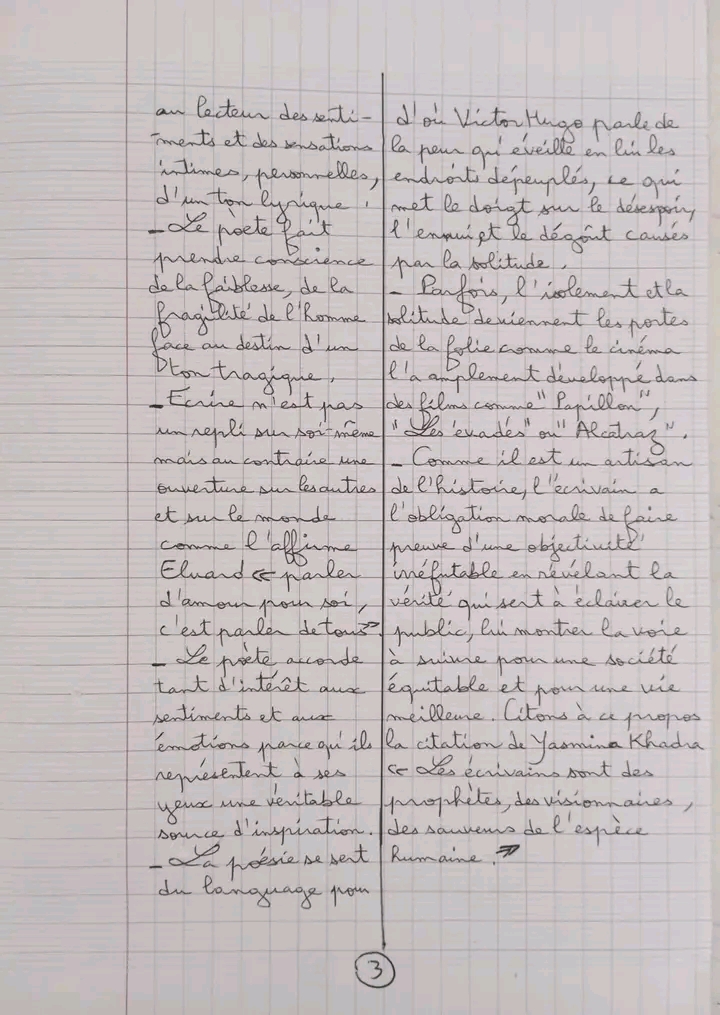 au lecteur des senti-
ments et des sensations
intimes, personnelles,
d'un ton lyrique.
- Le poète fait
prendre conscience
de la faiblesse, de la
fragilité de l'homme
face au destin d'un
ton tragique.
- Ecrire n'est pas
un repli sur soi-même
mais au contraire une
ouverture sur les autres
et sur le monde
comme l'affirme
Eluard « parler
d'amour pour soi,
c'est parler de tous ».
- Le poète accorde
tant d'intérêt aux
sentiments et aux
émotions parce qu'ils
représentent à ses
yeux une véritable
source d'inspiration.
- La poésie se sert
du language pour
d'où Victor Hugo parle de
la peur qu'éveille en lui les
endroits dépeuplés, ce qui
met le doigt sur le désespoir,
l'ennui et le dégoût causés
par la solitude.
- Parfois, l'isolement et la
solitude deviennent les portes
de la folie comme le cinéma
l'a amplement développé dans
des films comme "Papillon",
"Les évadés" ou "Alcatraz".
- Comme il est un artisan
de l'histoire, l'écrivain a
l'obligation morale de faire
preuve d'une objectivité
irréfutable en révélant la
vérité qui sert à éclairer le
public, lui montrer la voie
à suivre pour une société
équitable et pour une vie
meilleure. Citons à ce propos
la citation de Yasmina Khadra
« Les écrivains sont des
prophètes, des visionnaires,
des sauveurs de l'espèce
humaine. »
3